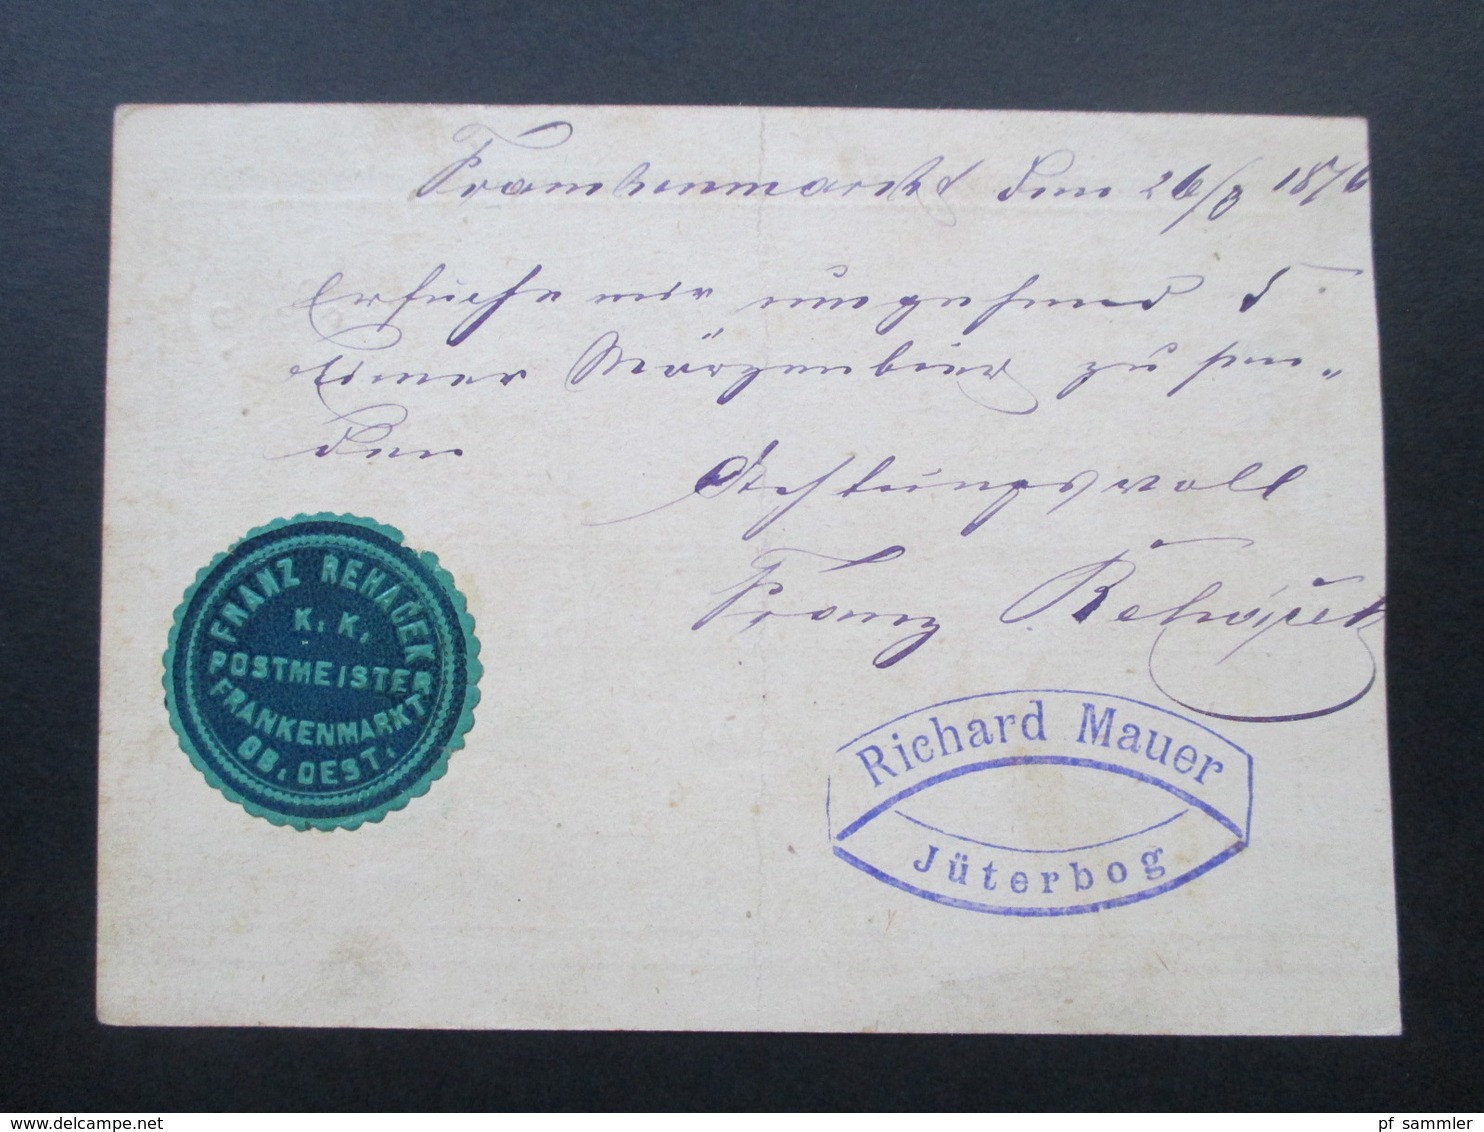 Frankenmarkt den 26/8 1876
Ersuche mir umgehend 5
Eimer Märzenbier zu sen„
den
Achtungsvoll
Franz Rehaček
FRANZ REHAČEK
K. K.
POSTMEISTER
FRANKENMARKT
OB. OEST.
Richard Mauer
Jüterbog
pf_sammler